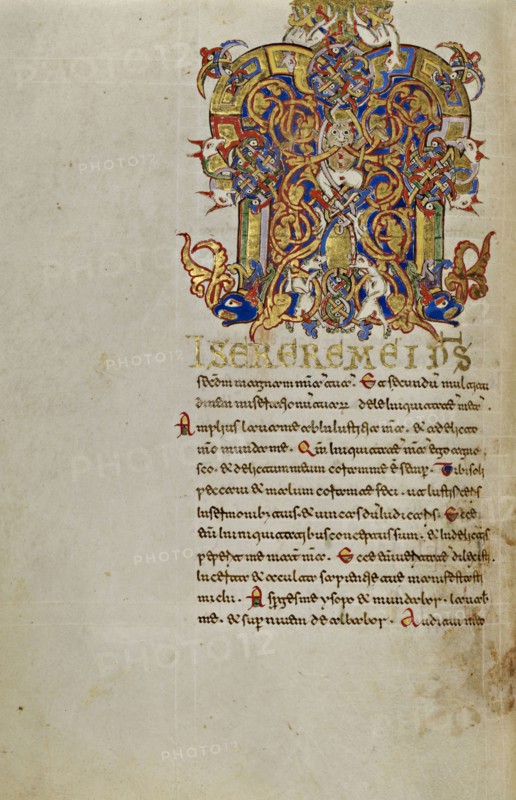 MISERERE MEI DS
secdm magnam miam tuam. Et secundu multitu
dinem miserationu tuaru dele iniquitate mea.
Amplius lava me ab iniustitia mea. & a delicto
meo munda me. Qm iniquitate mea ego agno
sco. & delictum meum coram me e semp. Tibi soli
peccavi & malum coram te feci. ut iustificeris
in sermonib; tuis. & vincas du iudicaris. Ecce
eni in iniquitatibus conceptus sum. & in delictis
peperit me mater mea. Ecce eni veritate dilexisti.
incerta & occulta sapientie tue manifestasti
michi. Asperges me ysopo & mundabor. lavab
me. & sup nivem dealbabor. Auditui meo
PHOTO12